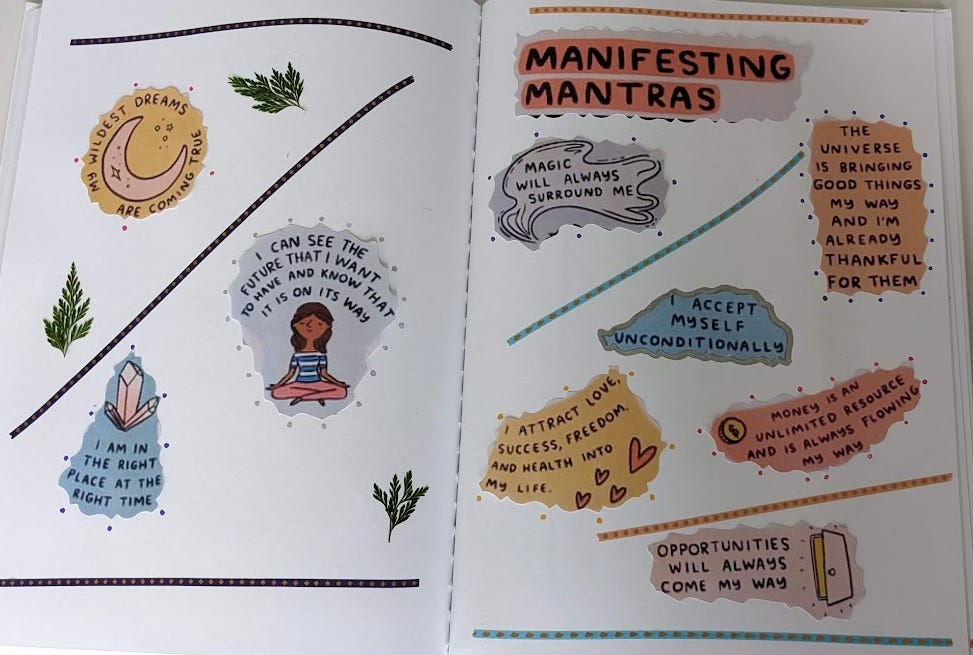 MY WILDEST DREAMS
ARE COMING TRUE
I CAN SEE THE
FUTURE THAT I WANT
TO HAVE AND KNOW THAT
IT IS ON ITS WAY
I AM IN
THE RIGHT
PLACE AT THE
RIGHT TIME
MANIFESTING
MANTRAS
MAGIC
WILL ALWAYS
SURROUND ME
THE
UNIVERSE
IS BRINGING
GOOD THINGS
MY WAY
AND I'M
ALREADY
THANKFUL
FOR THEM
I ACCEPT
MYSELF
UNCONDITIONALLY
I ATTRACT LOVE,
SUCCESS, FREEDOM,
AND HEALTH INTO
MY LIFE.
$
MONEY IS AN
UNLIMITED RESOURCE
AND IS ALWAYS FLOWING
MY WAY
OPPORTUNITIES
WILL ALWAYS
COME MY WAY